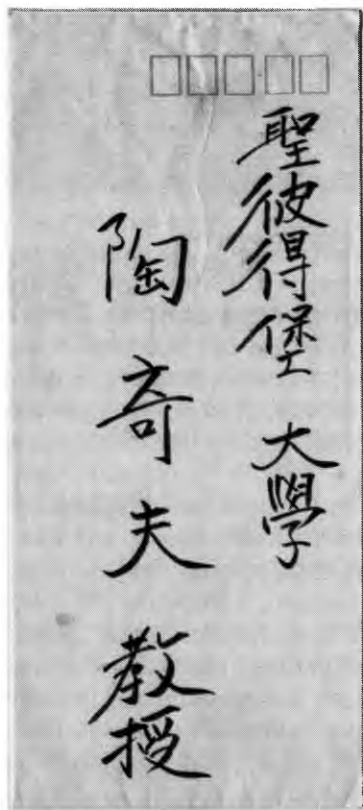 聖彼得堡 大學
陶奇夫教授